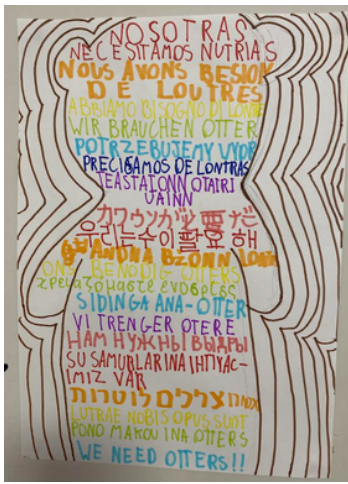 NOSOTRAS
NECESITAMOS NUTRIAS
NOUS AVONS BESION
DE LOUTRES
ABBIAMO BISOGNO DI
WIR BRAUCHEN OTTER
POTRZEBUJEMY WYDR
PRECISAMOS DE LONTRAS
TEASTAIONN OTAIRI
UAINN
カワウソが必要だ
우리는수이 필요해
BZONN
ONS BENODIG OTTERS
SIDINGA ANA-OTTER
VI TRENGER OTERE
НАМ НУЖНЫ ВЫДРЫ
SU SAMURLARINA IHTIYAC-
IMIZ VAR
לוטרות
LUTRAE NOBIS OPUS SUNT
PONO MAKOU INA OTTERS
WE NEED OTTERS!!